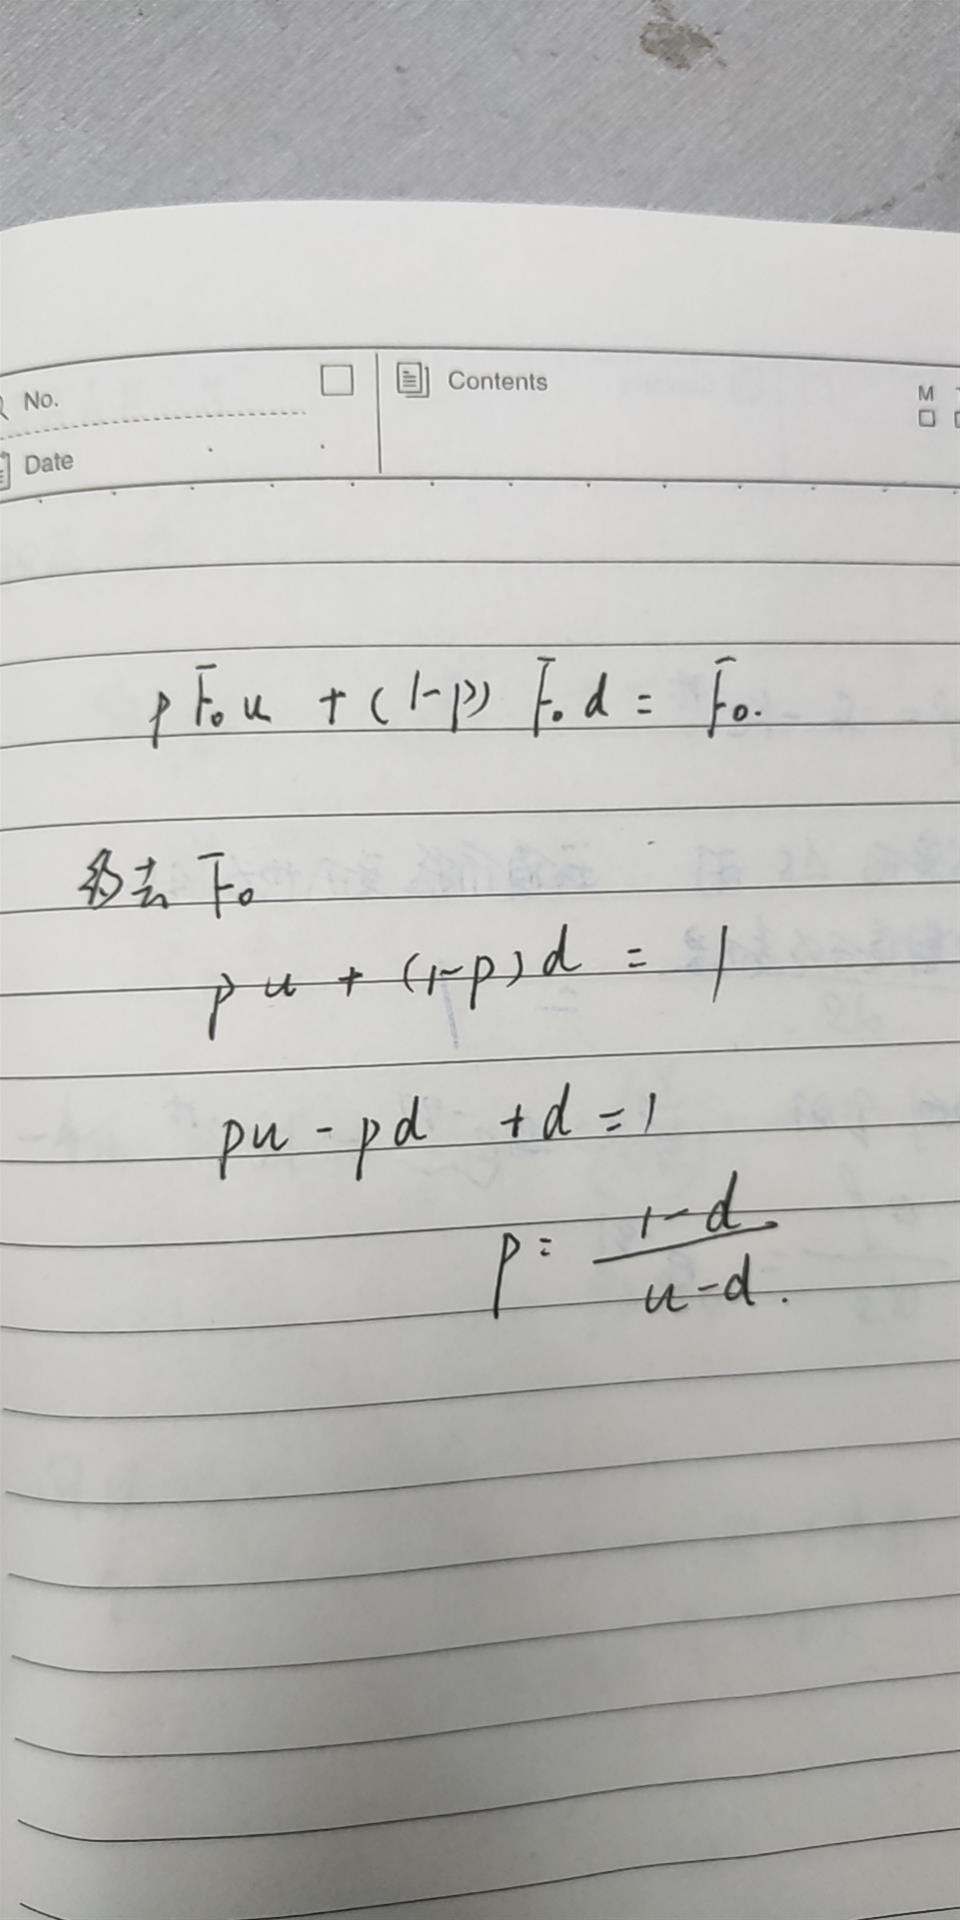 No.
Contents
M
Date
pF₀u + (1-p) F₀d = F₀.
约去 F₀
pu + (1-p)d = 1
pu - pd + d = 1
p = \frac{1-d}{u-d}.